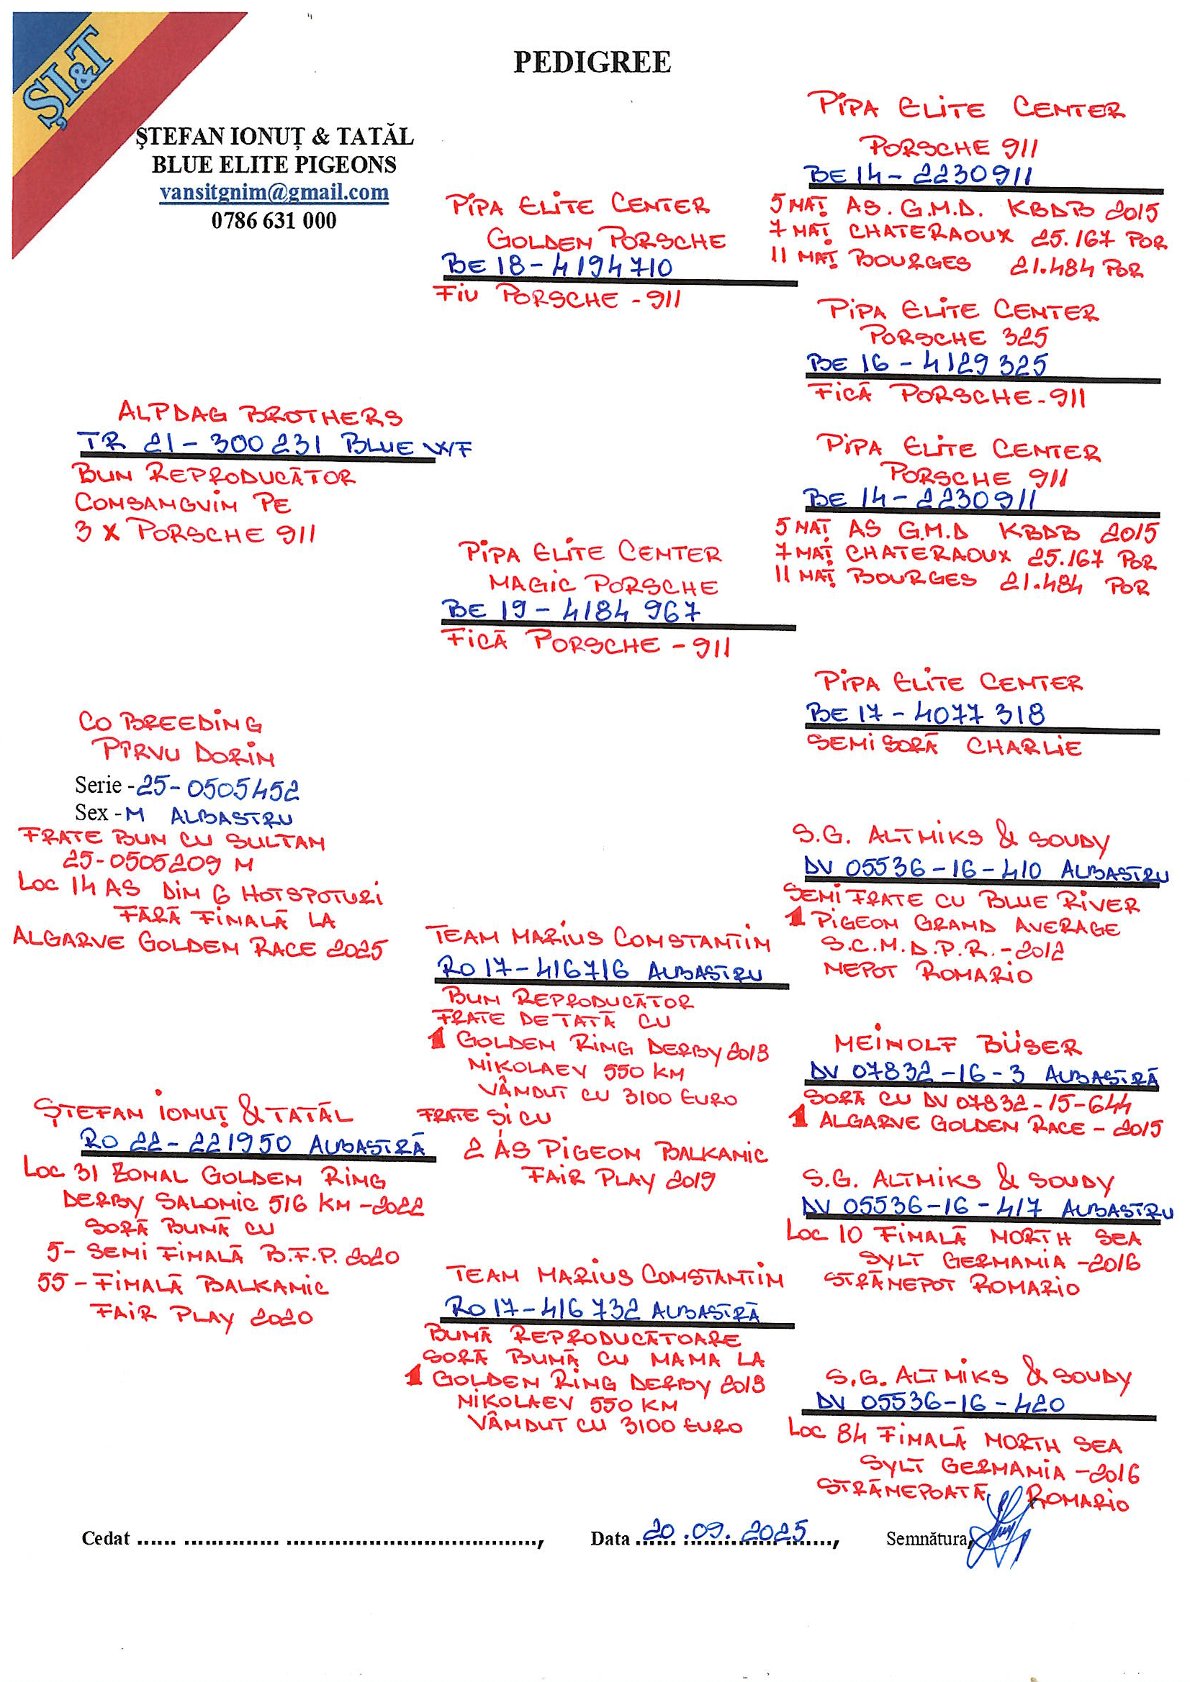 ȘI&T
PEDIGREE
ȘTEFAN IONUȚ & TATĂL
BLUE ELITE PIGEONS
vansitgnim@gmail.com
0786 631 000
PIPA ELITE CENTER
PORSCHE 911
BE 14-2230911
5 NAȚ AS. G.M.D. KBDB 2015
7 NAȚ CHATERAOUX 25.167 POR
11 NAȚ BOURGES 21.484 POR
PIPA ELITE CENTER
GOLDEN PORSCHE
BE 18-4194710
FIU PORSCHE -911
PIPA ELITE CENTER
PORSCHE 325
BE 16-4129325
FICĂ PORSCHE-911
ALPDAG BROTHERS
TR 21-300231 BLUE WF
BUN REPRODUCĂTOR
CONSANGVIN PE
3 X PORSCHE 911
PIPA ELITE CENTER
PORSCHE 911
BE 14-2230911
5 NAȚ AS G.M.D KBDB 2015
7 NAȚ CHATERAOUX 25.167 POR
11 NAȚ BOURGES 21.484 POR
PIPA ELITE CENTER
MAGIC PORSCHE
BE 19-4184 967
FICĂ PORSCHE -911
PIPA ELITE CENTER
BE 17-4077 318
SEMISORĂ CHARLIE
CO BREEDING
PÎRVU DORIN
Serie -25-0505452
Sex -M ALBASTRU
FRATE BUN CU SULTAN
25-0505209 M
LOC 14 AS DIN 6 HOTSPOTURI
FĂRĂ FINALĂ LA
ALGARVE GOLDEN RACE 2025
S.G. ALTMIKS & SOUDY
DV 05536-16-410 ALBASTRU
SEMI FRATE CU BLUE RIVER
1 PIGEON GRAND AVERAGE
S.C.M.D.P.R.-2012
NEPOT ROMARIO
TEAM MARIUS CONSTANTIN
RO 17-416716 ALBASTRU
BUN REPRODUCĂTOR
FRATE DE TATĂ CU
1 GOLDEN RING DERBY 2018
NIKOLAEV 550 KM
VÂNDUT CU 3100 EURO
FRATE ȘI CU
2 ÁS PIGEON BALKANIC
FAIR PLAY 2019
MEINOLF BÜSER
DV 07832-16-3 ALBASTRĂ
SORĂ CU DV 07832-15-644
1 ALGARVE GOLDEN RACE - 2015
ȘTEFAN IONUȚ & TATĂL
RO 22-221950 ALBASTRĂ
LOC 31 ZONAL GOLDEN RING
DERBY SALONIC 516 KM-2022
SORĂ BUNĂ CU
5- SEMI FINALĂ B.F.P. 2020
55 - FINALĂ BALKANIC
FAIR PLAY 2020
S.G. ALTMIKS & SOUDY
DV 05536-16-417 ALBASTRU
LOC 10 FINALĂ NORTH SEA
SYLT GERMANIA -2016
STRĂNEPOT ROMARIO
TEAM MARIUS CONSTANTIN
RO 17-416 732 ALBASTRĂ
BUNĂ REPRODUCĂTOARE
SORĂ BUNĂ CU MAMA LA
1 GOLDEN RING DERBY 2018
NIKOLAEV 550 KM
VÂNDUT CU 3100 EURO
S.G. ALTMIKS & SOUDY
DV 05536-16-420
LOC 84 FINALĂ NORTH SEA
SYLT GERMANIA -2016
STRĂNEPOATĂ ROMARIO
Cedat ...... .............. ....................................., Data 20.09.2025, Semnătura,